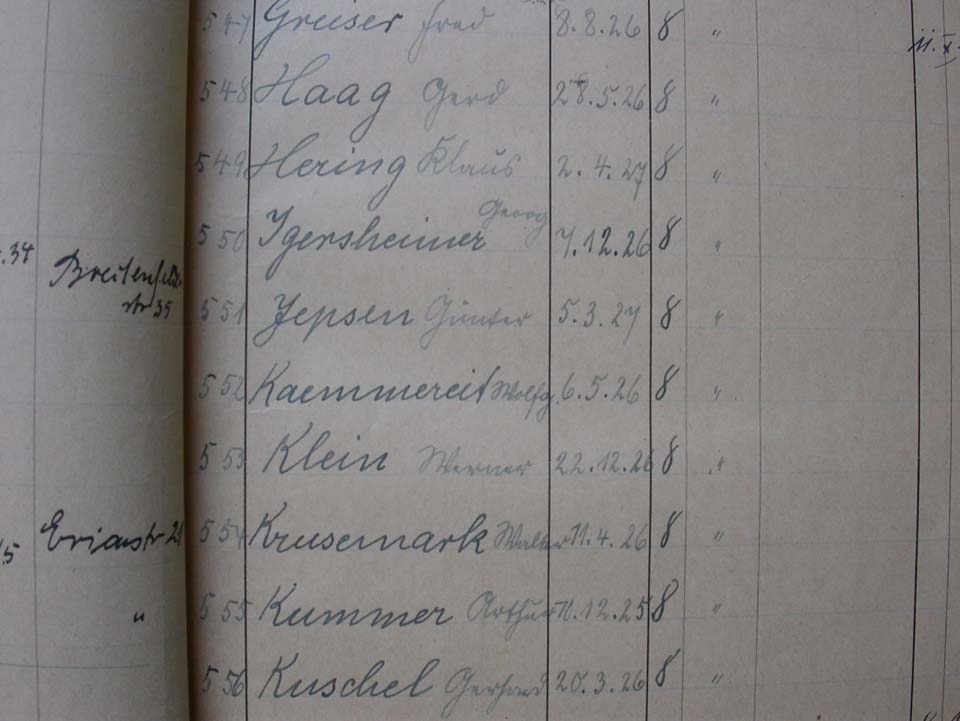 547 Greiser Fred 8.8.26 8 "
548 Haag Gerd 28.5.26 8 "
549 Hering Klaus 2.4.27 8 "
550 Igersheimer Georg 7.12.26 8 "
.34 Breitenfelder
str 35
551 Jepsen Günter 5.3.27 8 "
552 Kaemmereit Wolfg. 6.5.26 8 "
553 Klein Werner 22.12.26 8 "
554 Krusemark Walter 11.4.26 8 "
" 555 Kummer Arthur 10.12.25 8 "
556 Kuschel Gerhard 20.3.26 8 "